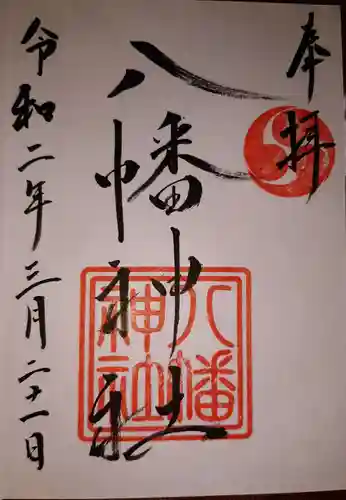 奉拝
八幡神社
八幡
神社
令和二年三月二十一日